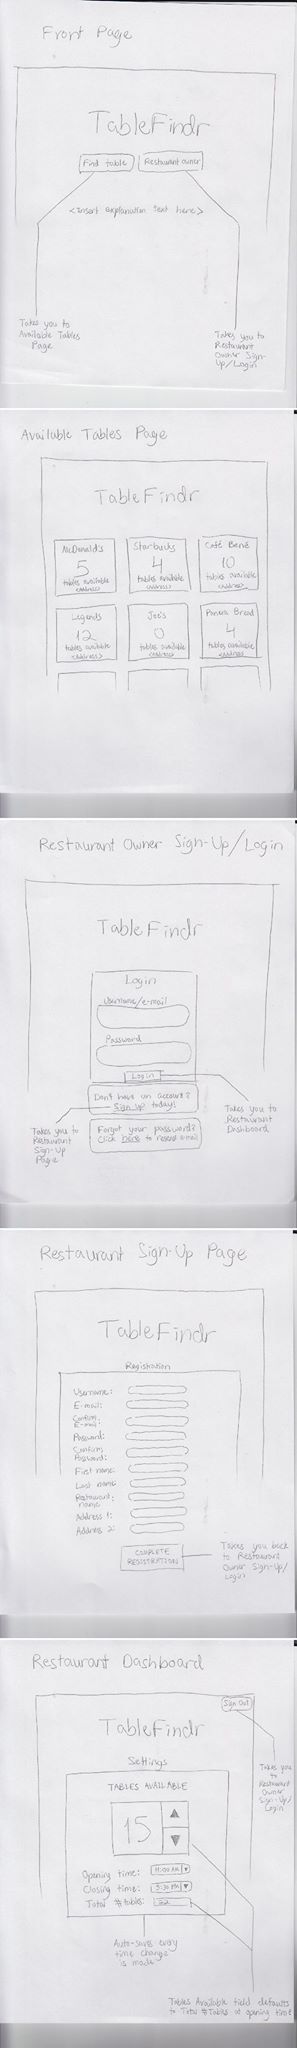 Front Page
TableFindr
Find table
Restaurant owner
<Insert explanation text here>
Takes you to
Available Tables
Page
Takes you to
Restaurant
Owner Sign-
Up/Login
Available Tables Page
TableFindr
McDonald's
5
tables available
<address>
Starbucks
4
tables available
<address>
Café Bene
10
tables available
<address>
Legends
12
tables available
<address>
Joe's
0
tables available
<address>
Panera Bread
4
tables available
<address>
Restaurant Owner Sign-Up/Login
TableFindr
Login
Username/e-mail
Password
Login
Don't have an account?
Sign-up today!
Forgot your password?
Click here to resend e-mail
Takes you to
Restaurant
Sign-Up
Page
Takes you to
Restaurant
Dashboard
Restaurant Sign-Up Page
TableFindr
Registration
Username:
E-mail:
Confirm
E-mail:
Password:
Confirm
Password:
First name:
Last name:
Restaurant
name:
Address 1:
Address 2:
COMPLETE
REGISTRATION
Takes you back
to Restaurant
Owner Sign-Up/
Login
Restaurant Dashboard
Sign Out
TableFindr
Takes
you to
Restaurant
Owner
Sign-Up/
Login
Settings
TABLES AVAILABLE
15
Opening time: 11:00 AM
Closing time: 5:30 PM
Total # tables:
Auto-saves every
time change
is made
Tables Available field defaults
to Total # Tables at opening time